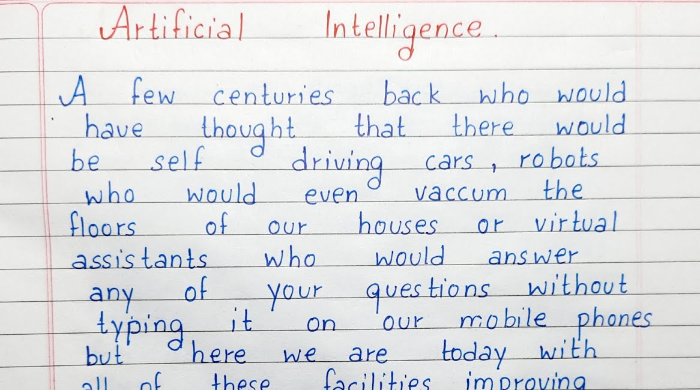 Artificial Intelligence.
A few centuries back who would
have thought that there would
be self driving cars, robots
who would even vaccum the
floors of our houses or virtual
assistants who would answer
any of your questions without
typing it on our mobile phones
but here we are today with
all of these facilities improving